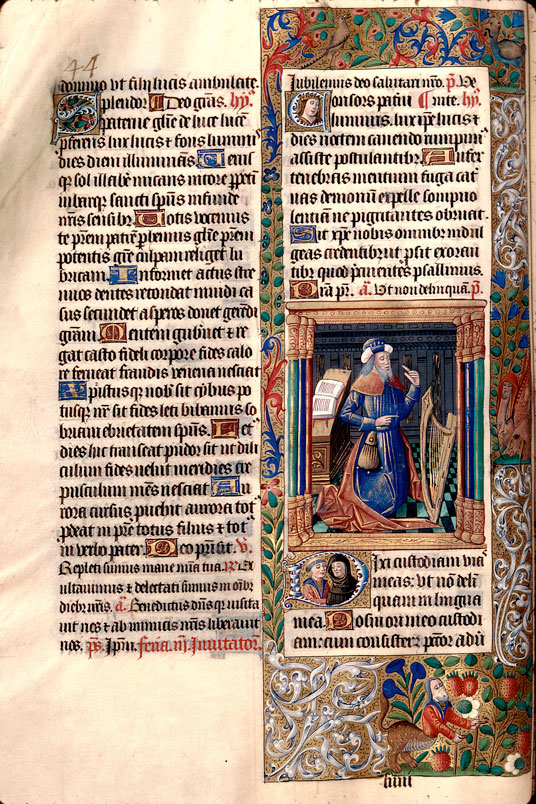 44
domino ut filii lucis ambulate.
Splendor Deo grās. hy̅.
paterne glīe de luce lucē
pferēs lux lucis & fons lumini
dies diem illuminās. Veniꝰ
que sol illabere micans nitore ppeti
iubarque sancti spūs infunde
nr̄is sensibꝰ. Votis vocemus
te prēm patrē phennis glīe prēm
potentis grē culpam religet lu
bricam. Informet actus stre
nuos dentes retondat inuidi ca
sus secundet asperos donet gerēdi
grām. Mentem gubnet & re
gat casto fideli corpore fides calo
re ferueat fraudis venena nesciat
Xpistusque nob̄ sit cybus po
tusque nr̄ sit fides leti bibamus so
briam ebrietatem spūs. Let
dies hic transeat pudor sit ut dilu
culum fides velut meridies cre
pusculum mēs nesciat. Au
rora cursus puehit aurora tot
pdeat in prē totus filius & tot
in verbo pater. Deo pri sit. v.
Repleti sumus mane mīa tua. Rx. Ex
ultauimus & delectati sumus in oībꝫ
diebꝫ nr̄is. a. Benedictus dn̄s quia visita
uit nos & ab inimicis nr̄is liberauit
nos. ps. Ipm. feria. iii. Inuitator̄.
Iubilemus deo salutari nr̄o. p. Ve
Consors paterni nite. hy̅.
luminis. lux ipse lucis &
dies noctem canendo rumpimꝰ
assiste postulantibꝰ. Aufer
tenebras mentium fuga cat
uas demonum expelle sompno
lentiam ne pigritantes obruat.
Sic xpē nobis omnibꝫ indul
geas credentibus psit exoran
tibꝫ quod precinentes psallimus.
Pra pr̄. a. Ut non delinquā. p.
Dixi custodiam via
meas: ut nō deli
quam in lingua
mea. Posui ori meo custodi
am: cum consisteret pctor adū